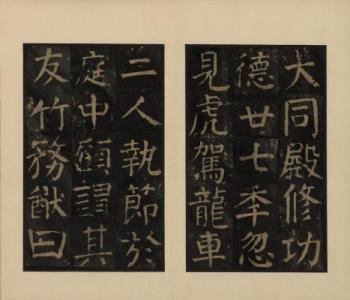 大同殿修功
德廿七季忽
見虎駕龍車
二人執節於
庭中顧謂其
友竹務猷曰